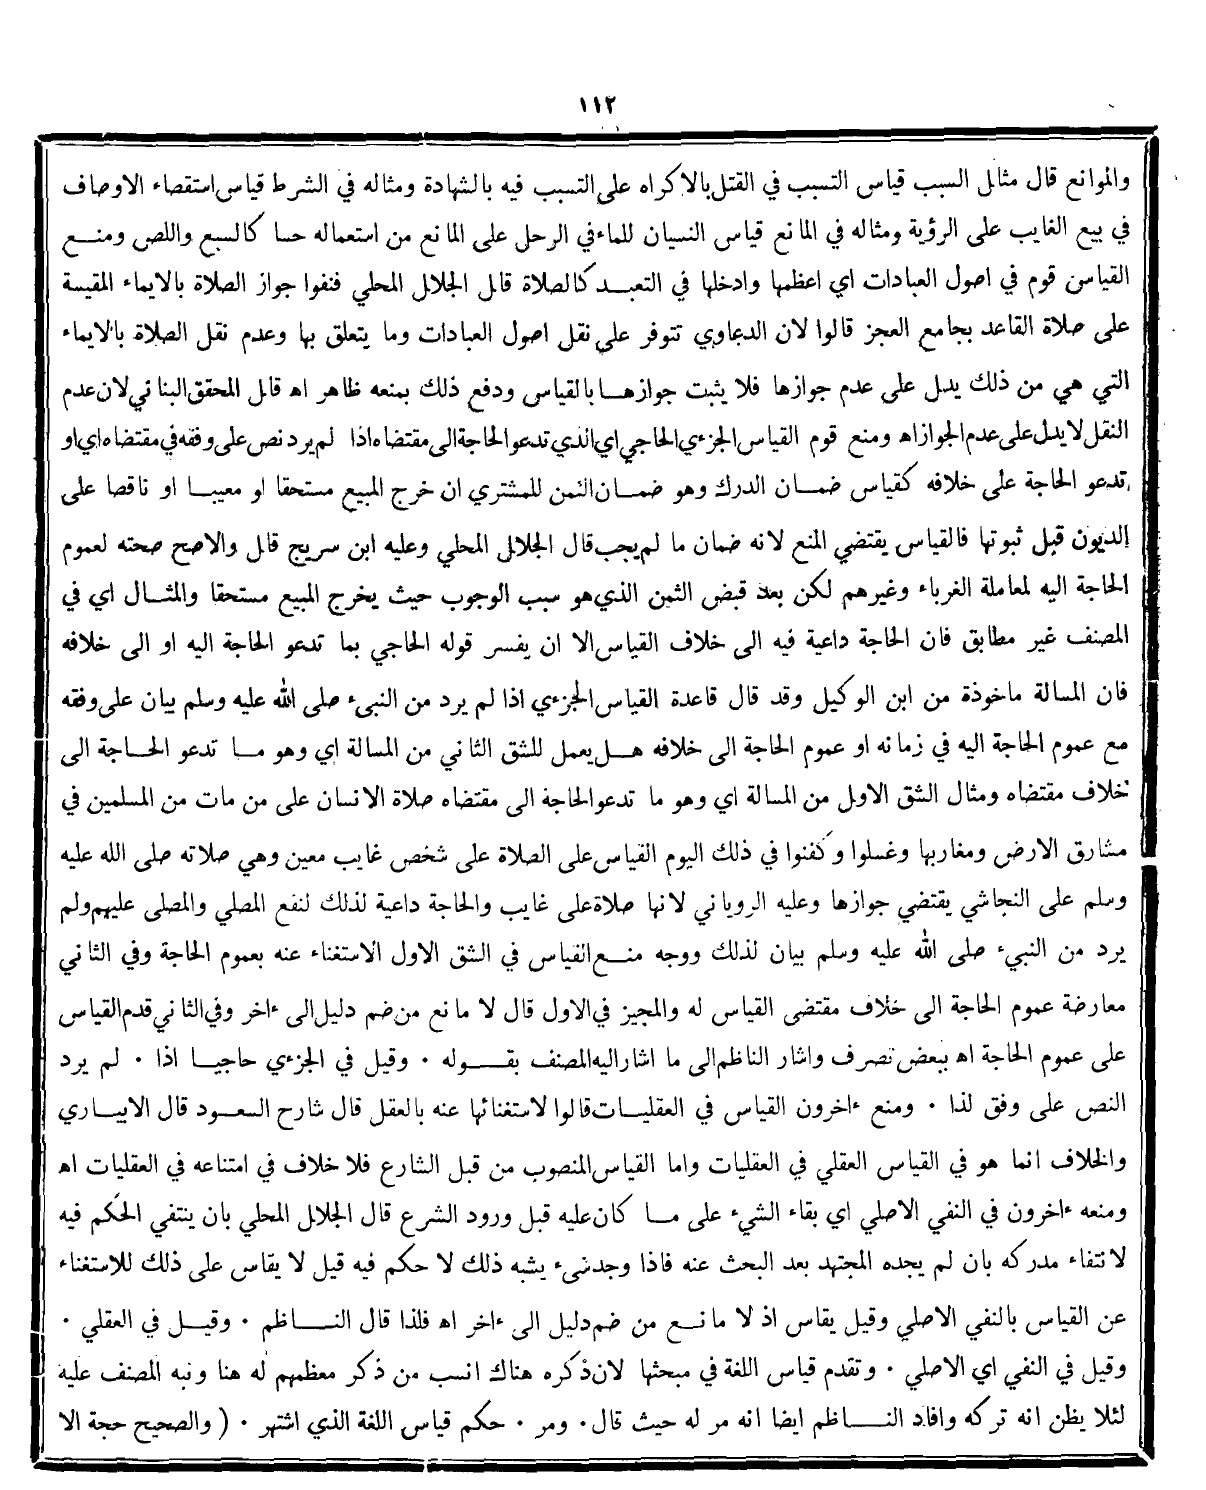 ١١٢
والموانع قال مثال السبب قياس التسبب في القتل بالاكراه على التسبب فيه بالشهادة ومثاله في الشرط قياس استقصاء الاوصاف
في بيع الغايب على الرؤية ومثاله في المانع قياس النسيان للماء في الرحل على المانع من استعماله حسا كالسبع واللص ومنع
القياس قوم في اصول العبادات اي اعظمها وادخلها في التعبد كالصلاة قال الجلال المحلي فنفوا جواز الصلاة بالايماء المقيسة
على صلاة القاعد بجامع العجز قالوا لان الدعاوي تتوفر على نقل اصول العبادات وما يتعلق بها وعدم نقل الصلاة بالايماء
التي هي من ذلك يدل على عدم جوازها فلا يثبت جوازها بالقياس ودفع ذلك بمنعه ظاهر اه قال المحقق البناني لان عدم
النقل لا يدل على عدم الجواز اه ومنع قوم القياس الجزءي الحاجي اي الذي تدعو الحاجة الى مقتضاه اذا لم يرد نص على وفقه في مقتضاه اي او
تدعو الحاجة على خلافه كقياس ضمان الدرك وهو ضمان الثمن للمشتري ان خرج المبيع مستحقا او معيبا او ناقصا على
الديون قبل ثبوتها فالقياس يقتضي المنع لانه ضمان ما لم يجب قال الجلال المحلي وعليه ابن سريج قال والاصح صحته لعموم
الحاجة اليه لمعاملة الغرباء وغيرهم لكن بعد قبض الثمن الذي هو سبب الوجوب حيث يخرج المبيع مستحقا والمثال اي في
المصنف غير مطابق فان الحاجة داعية فيه الى خلاف القياس الا ان يفسر قوله الحاجي بما تدعو الحاجة اليه او الى خلافه
فان المسالة ماخوذة من ابن الوكيل وقد قال قاعدة القياس الجزءي اذا لم يرد من النبيء صلى الله عليه وسلم بيان على وفقه
مع عموم الحاجة اليه في زمانه او عموم الحاجة الى خلافه هل يعمل للشق الثاني من المسالة اي وهو ما تدعو الحاجة الى
خلاف مقتضاه ومثال الشق الاول من المسالة اي وهو ما تدعو الحاجة الى مقتضاه صلاة الانسان على من مات من المسلمين في
مشارق الارض ومغاربها وغسلوا وكفنوا في ذلك اليوم القياس على الصلاة على شخص غايب معين وهي صلاته صلى الله عليه
وسلم على النجاشي يقتضي جوازها وعليه الروياني لانها صلاة على غايب والحاجة داعية لذلك لنفع المصلي والمصلى عليهم ولم
يرد من النبيء صلى الله عليه وسلم بيان لذلك ووجه منع القياس في الشق الاول الاستغناء عنه بعموم الحاجة وفي الثاني
معارضة عموم الحاجة الى خلاف مقتضى القياس له والمجيز في الاول قال لا مانع من ضم دليل الى ءاخر وفي الثاني قدم القياس
على عموم الحاجة اه ببعض تصرف واشار الناظم الى ما اشار اليه المصنف بقوله ٠ وقيل في الجزءي حاجيا اذا ٠ لم يرد
النص على وفق لذا ٠ ومنع ءاخرون القياس في العقليات قالوا لاستغنائها عنه بالعقل قال شارح السعود قال الابياري
والخلاف انما هو في القياس العقلي في العقليات واما القياس المنصوب من قبل الشارع فلا خلاف في امتناعه في العقليات اه
ومنعه ءاخرون في النفي الاصلي اي بقاء الشيء على ما كان عليه قبل ورود الشرع قال الجلال المحلي بان ينتفي الحكم فيه
لانتفاء مدركه بان لم يجده المجتهد بعد البحث عنه فاذا وجد شيء يشبه ذلك لا حكم فيه قيل لا يقاس على ذلك للاستغناء
عن القياس بالنفي الاصلي وقيل يقاس اذ لا مانع من ضم دليل الى ءاخر اه فلذا قال الناظم ٠ وقيل في العقلي ٠
وقيل في النفي اي الاصلي ٠ وتقدم قياس اللغة في مبحثها لان ذكره هناك انسب من ذكر معظمهم له هنا ونبه المصنف عليه
لئلا يظن انه تركه وافاد الناظم ايضا انه مر له حيث قال ٠ ومر ٠ حكم قياس اللغة الذي اشتهر ٠ ( والصحيح حجة الا